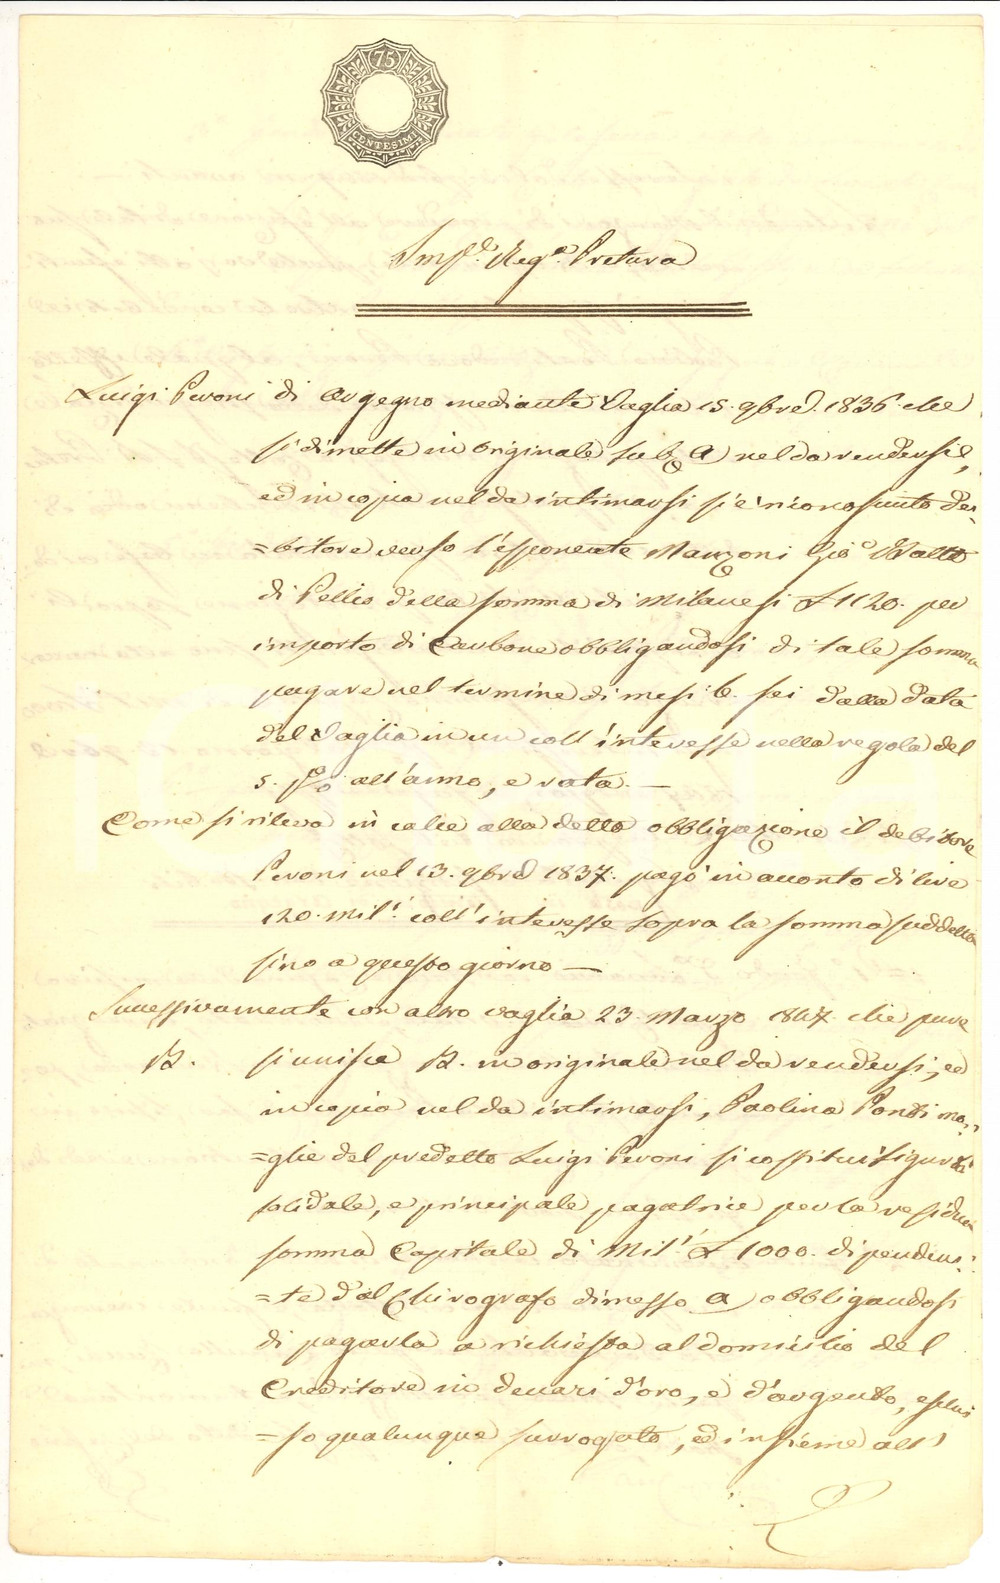 75
CENTESIMI
Imp.e Reg.a Pretura
Luigi Peroni di Argegno mediante Vaglia 15. 9bre. 1836. che
si dimette in originale sub A nel da rendersi,
ed in copia nel da intimarsi si è riconosciuto de=
=bitore verso l'esponente Manzoni Gio
di Pellio della somma di Milanesi £ 1120. per
importo di Carbone obbligandosi di tale somma
pagare nel termine di mesi 6. sei dalla data
del Vaglia in un coll'interesse nella regola del
5. p% all'anno, e rata. —
Come si rileva in calce alla detta obbligazione il debitore
Peroni nel 13. 9bre 1837. pagò in acconto di lire
120. Mil.i coll'interesse sopra la somma suddetta
sino a questo giorno —
Successivamente con altro vaglia 23. Marzo 1847. che pure
B. si unisce B. in originale nel da rendersi, ed
in copia nel da intimarsi, Paolina Ponti mo=
=glie del predetto Luigi Peroni si costituì sigurtà
solidale, e principale pagatrice per la residua
somma Capitale di Mil.i £ 1000. dipenden=
=te dal Chirografo dimesso A obbligandosi
di pagarla a richiesta al domicilio del
Creditore in denari d'oro, e d'argento, esclu
=so qualunque surrogato, ed insieme all'